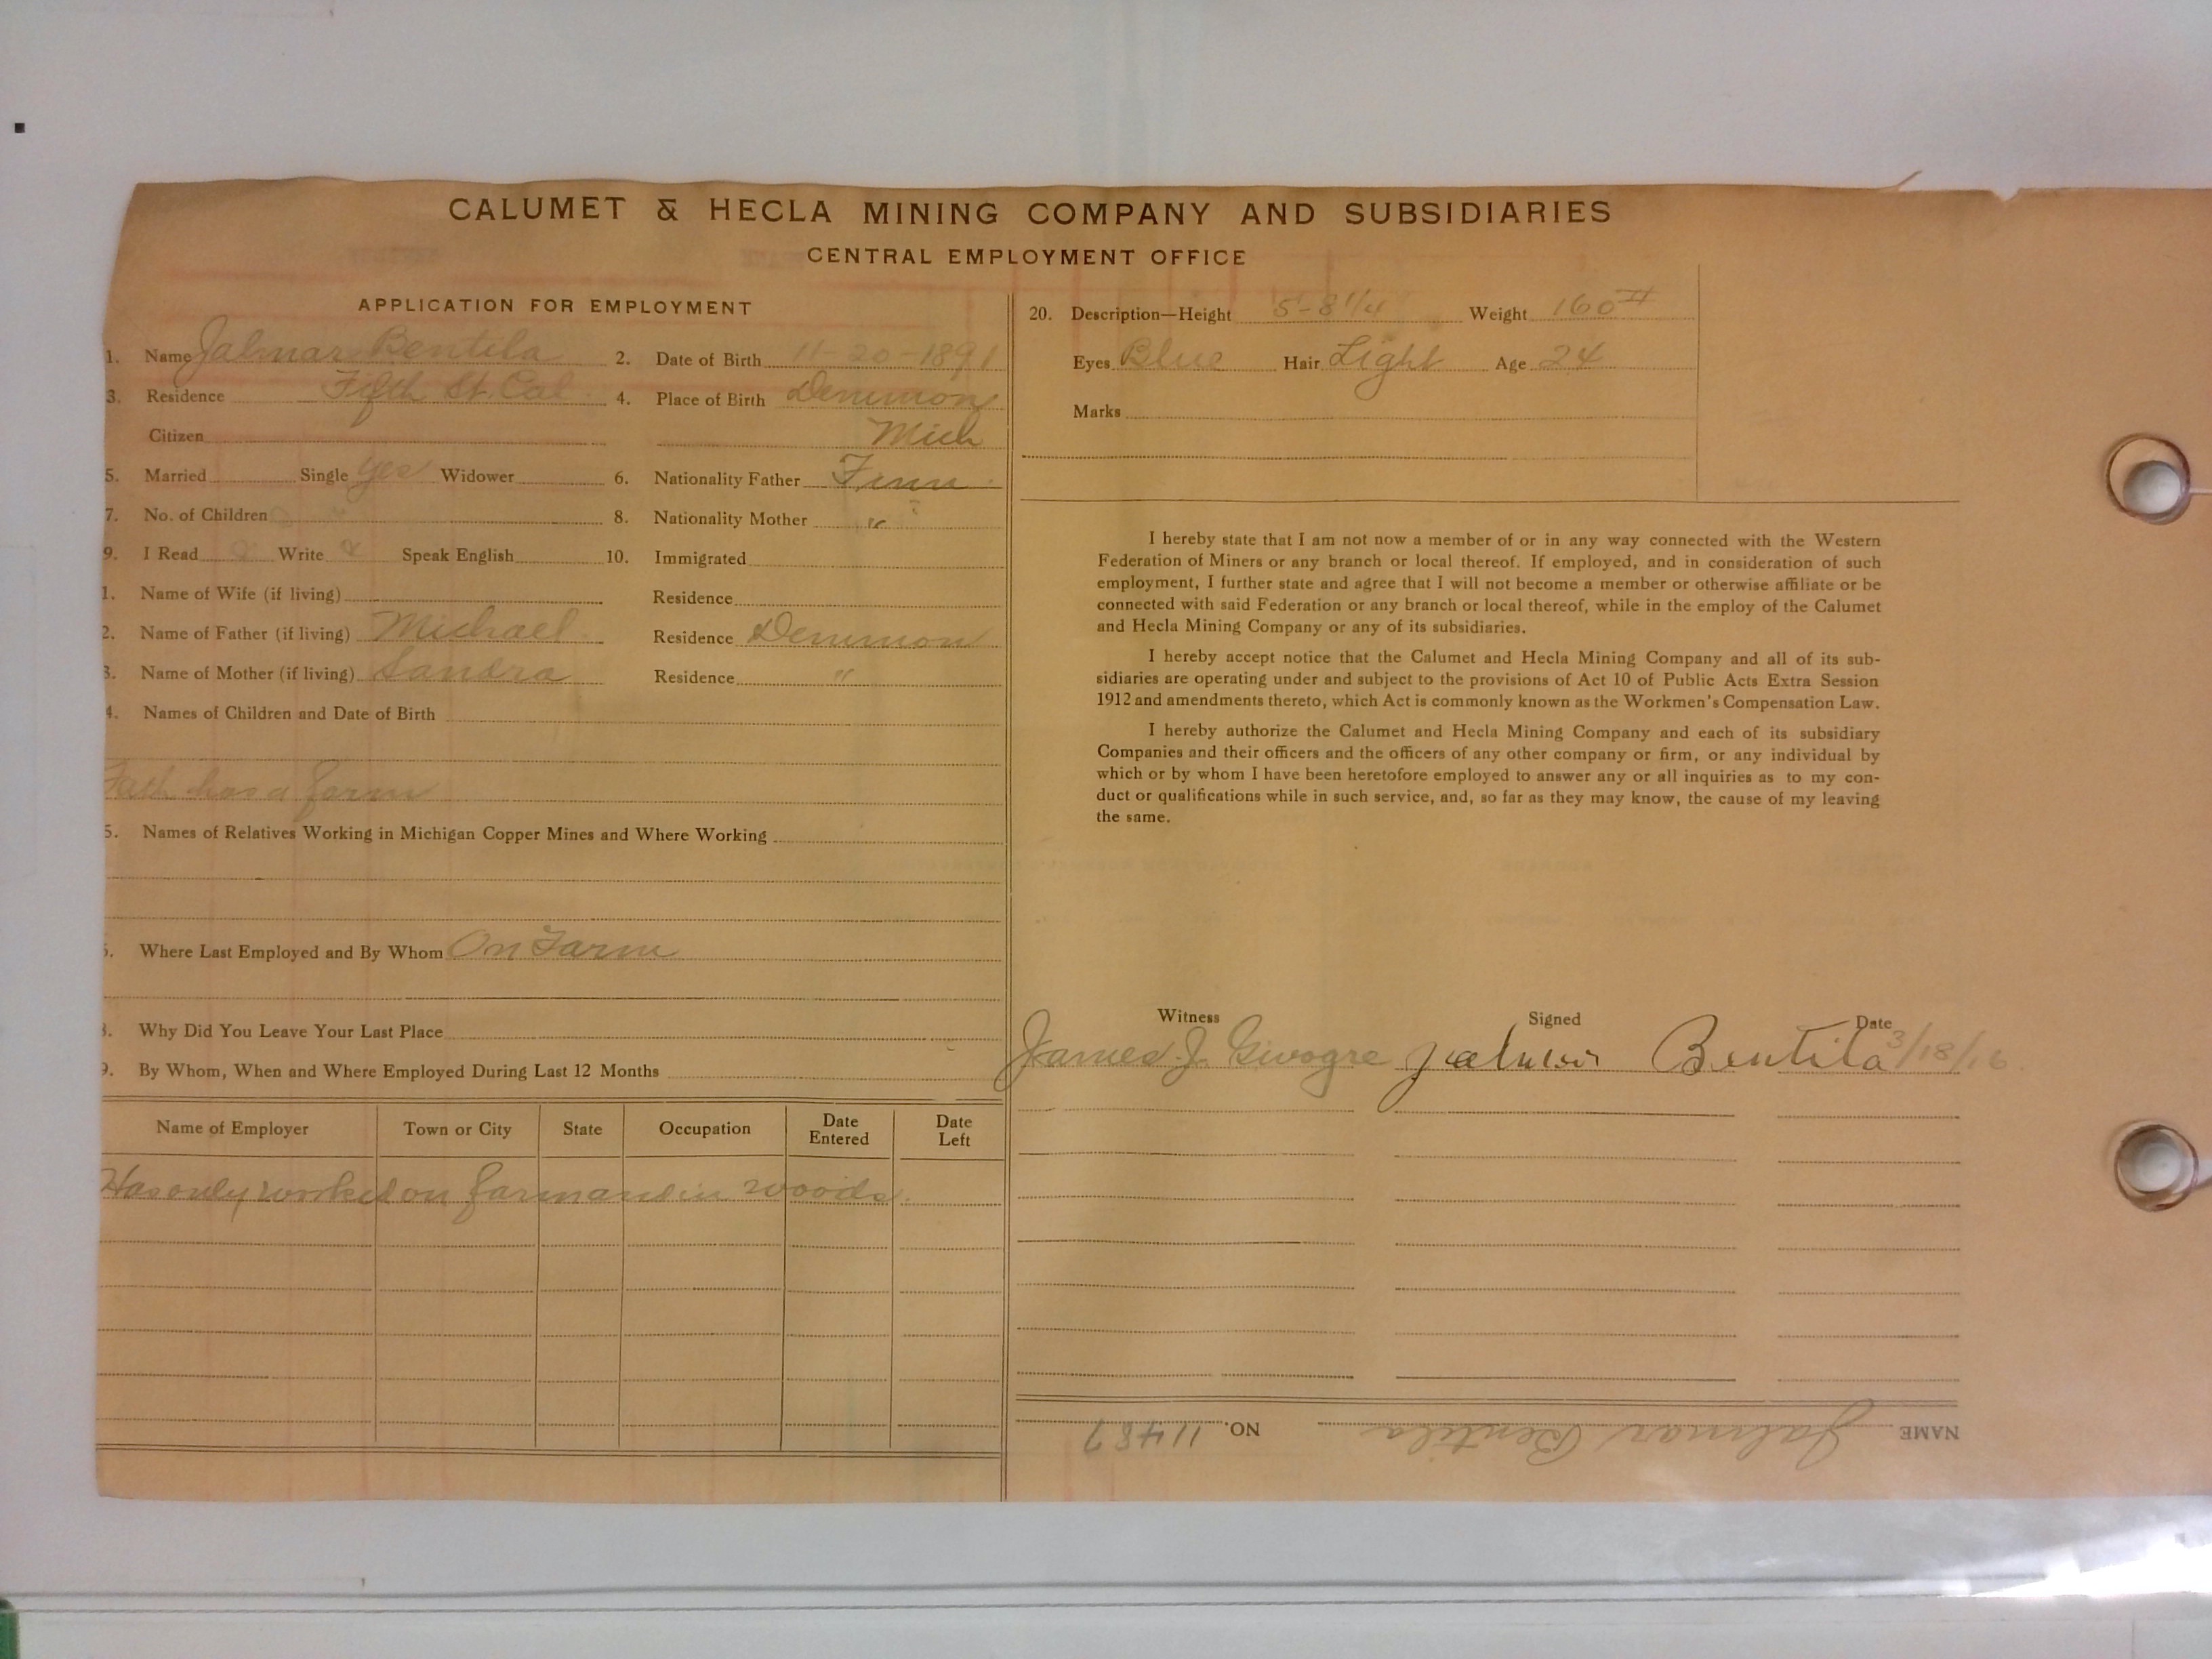 CALUMET & HECLA MINING COMPANY AND SUBSIDIARIES
CENTRAL EMPLOYMENT OFFICE
APPLICATION FOR EMPLOYMENT
1. Name Jalmar Bentila 2. Date of Birth 11-20-1891
3. Residence Fifth St. Cal 4. Place of Birth Demmon
Citizen Mich
5. Married Single yes Widower 6. Nationality Father Finn
7. No. of Children 8. Nationality Mother "
9. I Read Write Speak English 10. Immigrated
1. Name of Wife (if living) Residence
2. Name of Father (if living) Michael Residence Demmon
3. Name of Mother (if living) Sandra Residence "
4. Names of Children and Date of Birth
Fath has a farm
5. Names of Relatives Working in Michigan Copper Mines and Where Working
6. Where Last Employed and By Whom On Farm
8. Why Did You Leave Your Last Place
9. By Whom, When and Where Employed During Last 12 Months
Name of Employer Town or City State Occupation Date Entered Date Left
Has only worked on farm and in woods.
20. Description—Height 5'-8 1/4 Weight 160#
Eyes Blue Hair Light Age 24
Marks
I hereby state that I am not now a member of or in any way connected with the Western
Federation of Miners or any branch or local thereof. If employed, and in consideration of such
employment, I further state and agree that I will not become a member or otherwise affiliate or be
connected with said Federation or any branch or local thereof, while in the employ of the Calumet
and Hecla Mining Company or any of its subsidiaries.
I hereby accept notice that the Calumet and Hecla Mining Company and all of its sub-
sidiaries are operating under and subject to the provisions of Act 10 of Public Acts Extra Session
1912 and amendments thereto, which Act is commonly known as the Workmen's Compensation Law.
I hereby authorize the Calumet and Hecla Mining Company and each of its subsidiary
Companies and their officers and the officers of any other company or firm, or any individual by
which or by whom I have been heretofore employed to answer any or all inquiries as to my con-
duct or qualifications while in such service, and, so far as they may know, the cause of my leaving
the same.
Witness Signed Date
James J. Jalmar Bentila 3/18/16
NAME Jalmar Bentila NO. 11487